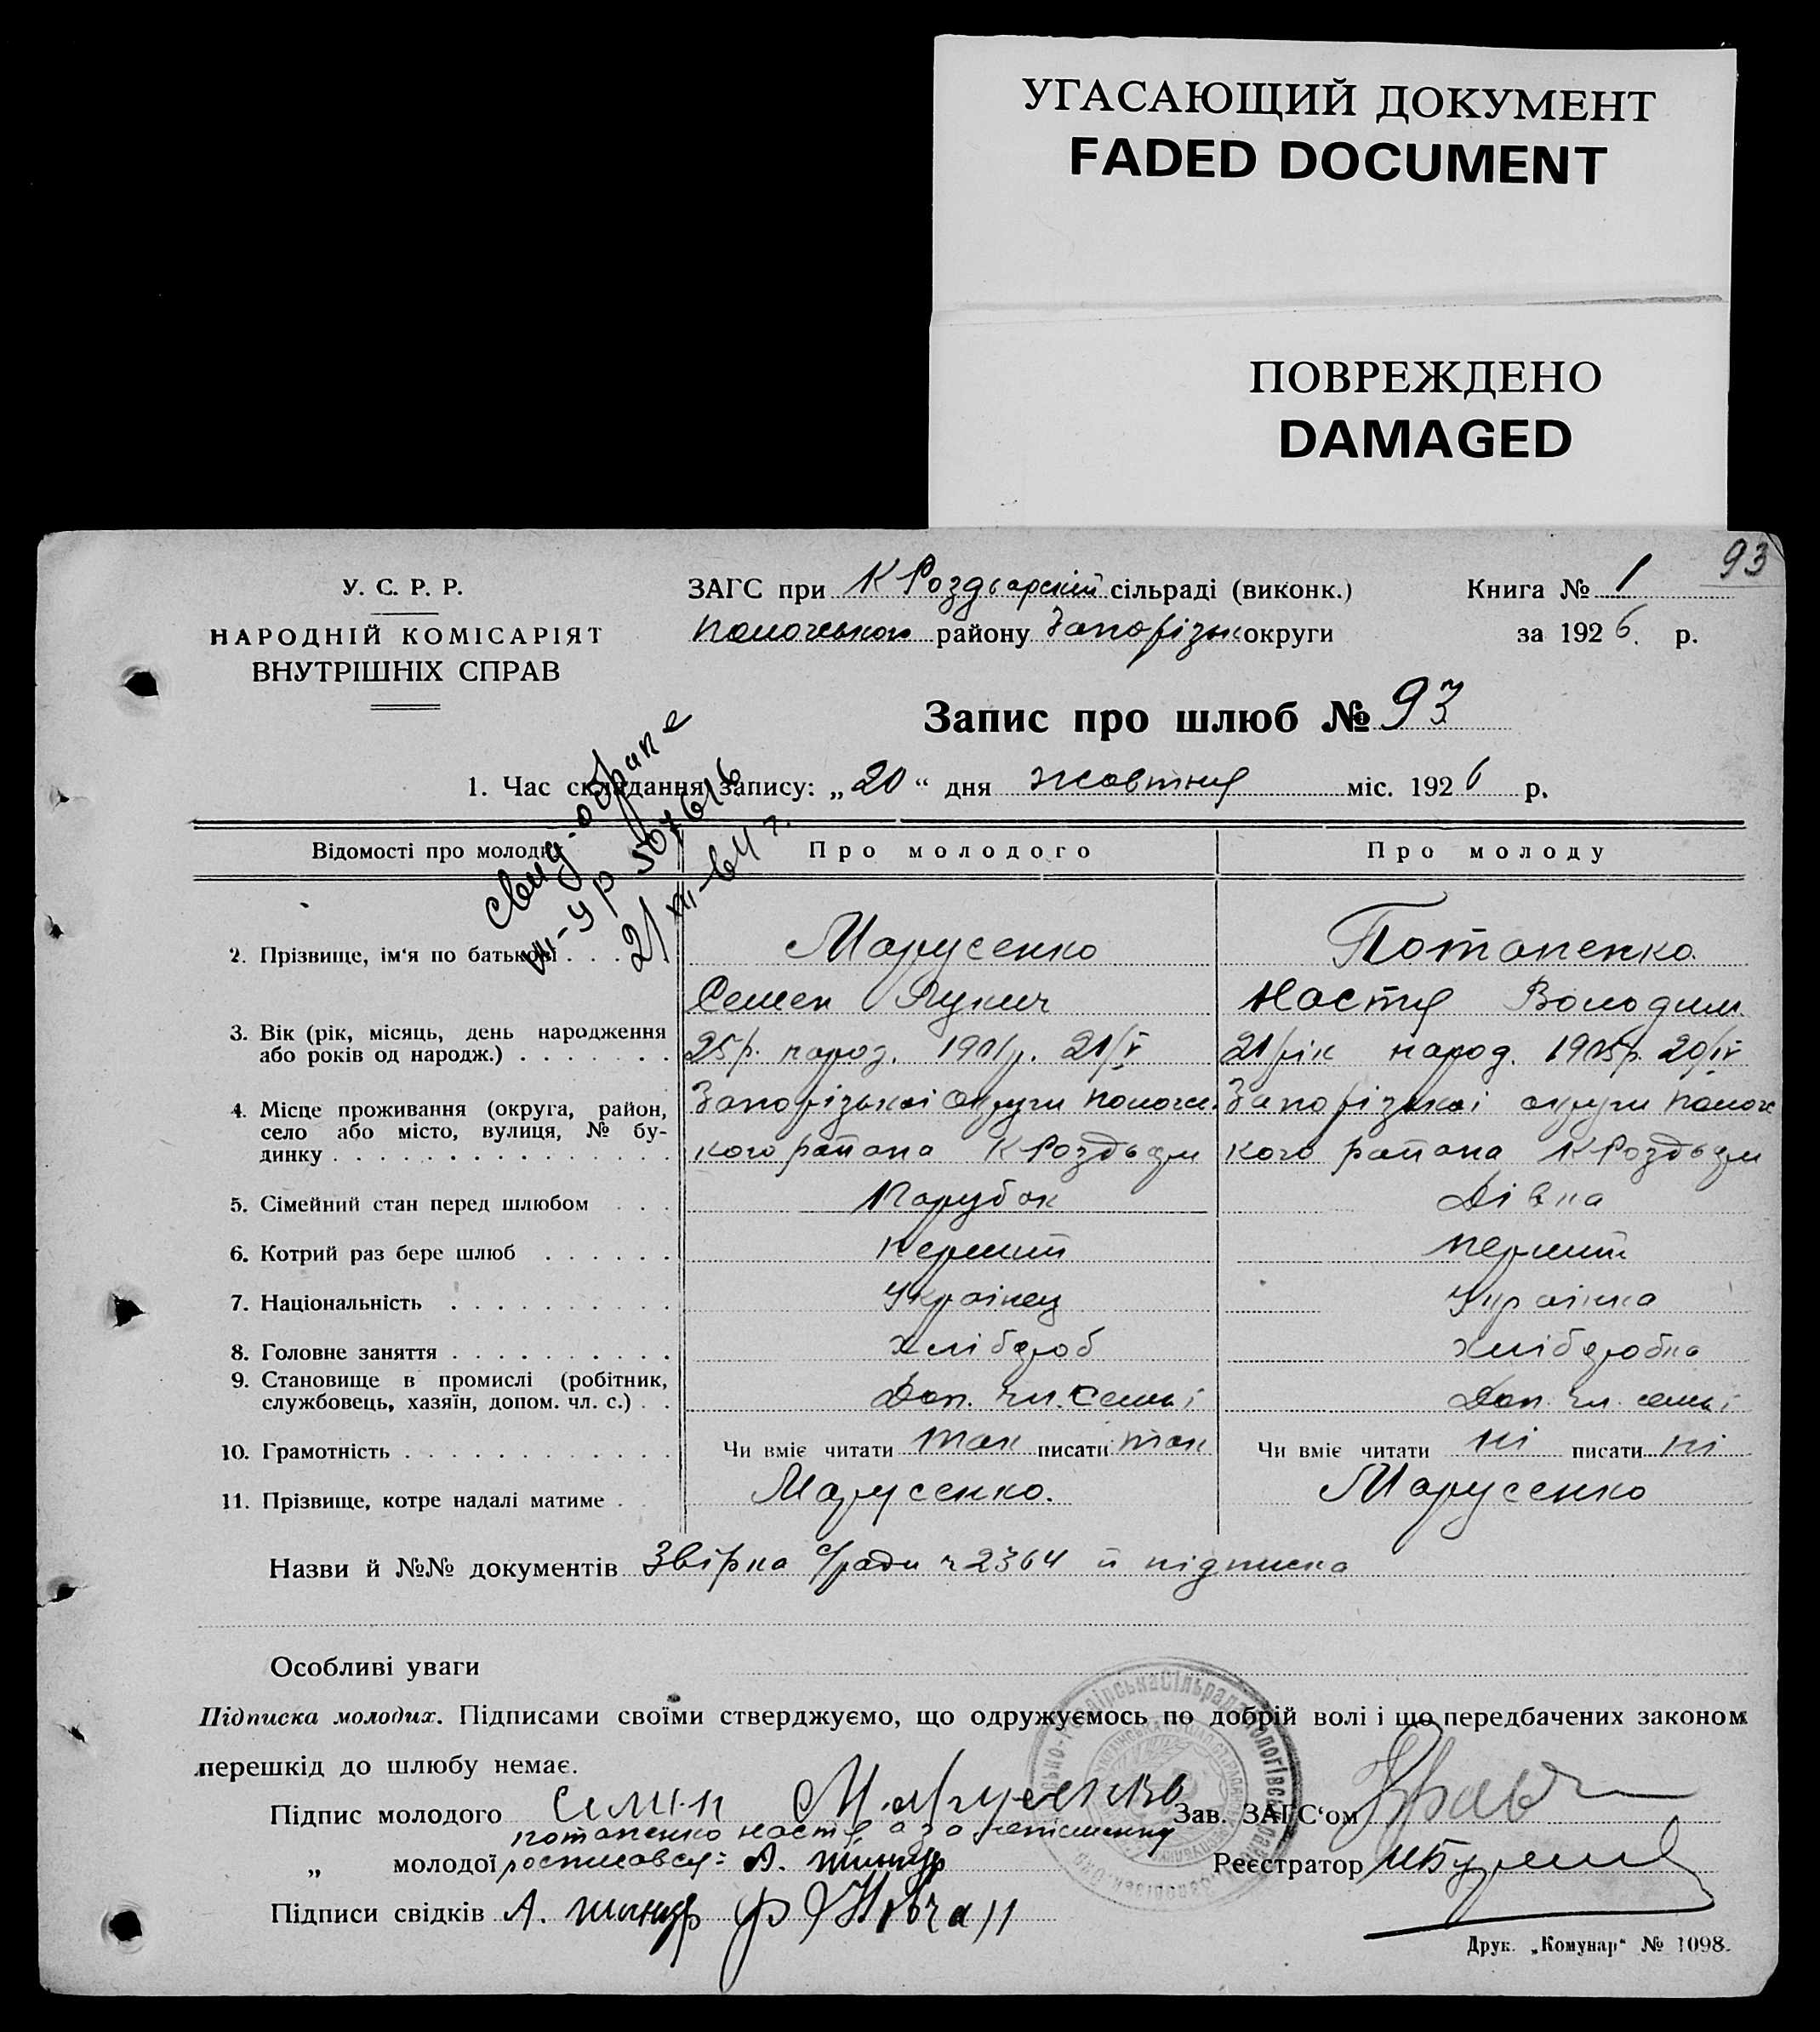 УГАСАЮЩИЙ ДОКУМЕНТ
FADED DOCUMENT
ПОВРЕЖДЕНО
DAMAGED
93
У. С. Р. Р.
НАРОДНІЙ КОМІСАРІЯТ
ВНУТРІШНІХ СПРАВ
ЗАГС при К Роздьорскій сільраді (виконк.)
Пологського району Запорізьк округи
Книга № 1
за 1926. р.
Запис про шлюб № 93
1. Час складання запису: „20“ дня жовтня міс. 1926 р.
21/XII-64 г.
Відомості про молодих Про молодого Про молоду
2. Прізвище, ім'я по батькові . . . Марусенко Потапенко.
Семен Лукич Настя Володим.
3. Вік (рік, місяць, день народження 25 р. народ. 1901 р. 21/V 21 рік народ. 1905 р. 20/IV
або років од народж.) . . . . . . .
4. Місце проживання (округа, район, Запорізької округи Пологс. Запорізької округи Полог
село або місто, вулиця, № бу-
динку . . . . . . . . . . . . . . . кого района К Роздьори кого района К Роздьори
5. Сімейний стан перед шлюбом . . . Парубок Дівка
6. Котрий раз бере шлюб . . . . . . перший перший
7. Національність . . . . . . . . . . Українец Українка
8. Головне заняття . . . . . . . . . . хлібороб хліборобка
9. Становище в промислі (робітник,
службовець, хазяїн, допом. чл. с.) . . Доп. чл. семьі Доп. чл. семьі
10. Грамотність . . . . . . . . . . . . Чи вміє читати так писати так Чи вміє читати ні писати ні
11. Прізвище, котре надалі матиме . Марусенко. Марусенко
Назви й №№ документів Звірка с/ради ч 2364 й підписка
Особливі уваги
Підписка молодих. Підписами своїми стверджуємо, що одружуємось по добрій волі і що передбачених законом
перешкід до шлюбу немає.
Підпис молодого Семен Марусенко Зав. ЗАГС'ом
Потапенко Настя а за неписьменну
„ молодої росписався: А. Реєстратор
Підписи свідків А.
Друк. „Комунар“ № 1098.